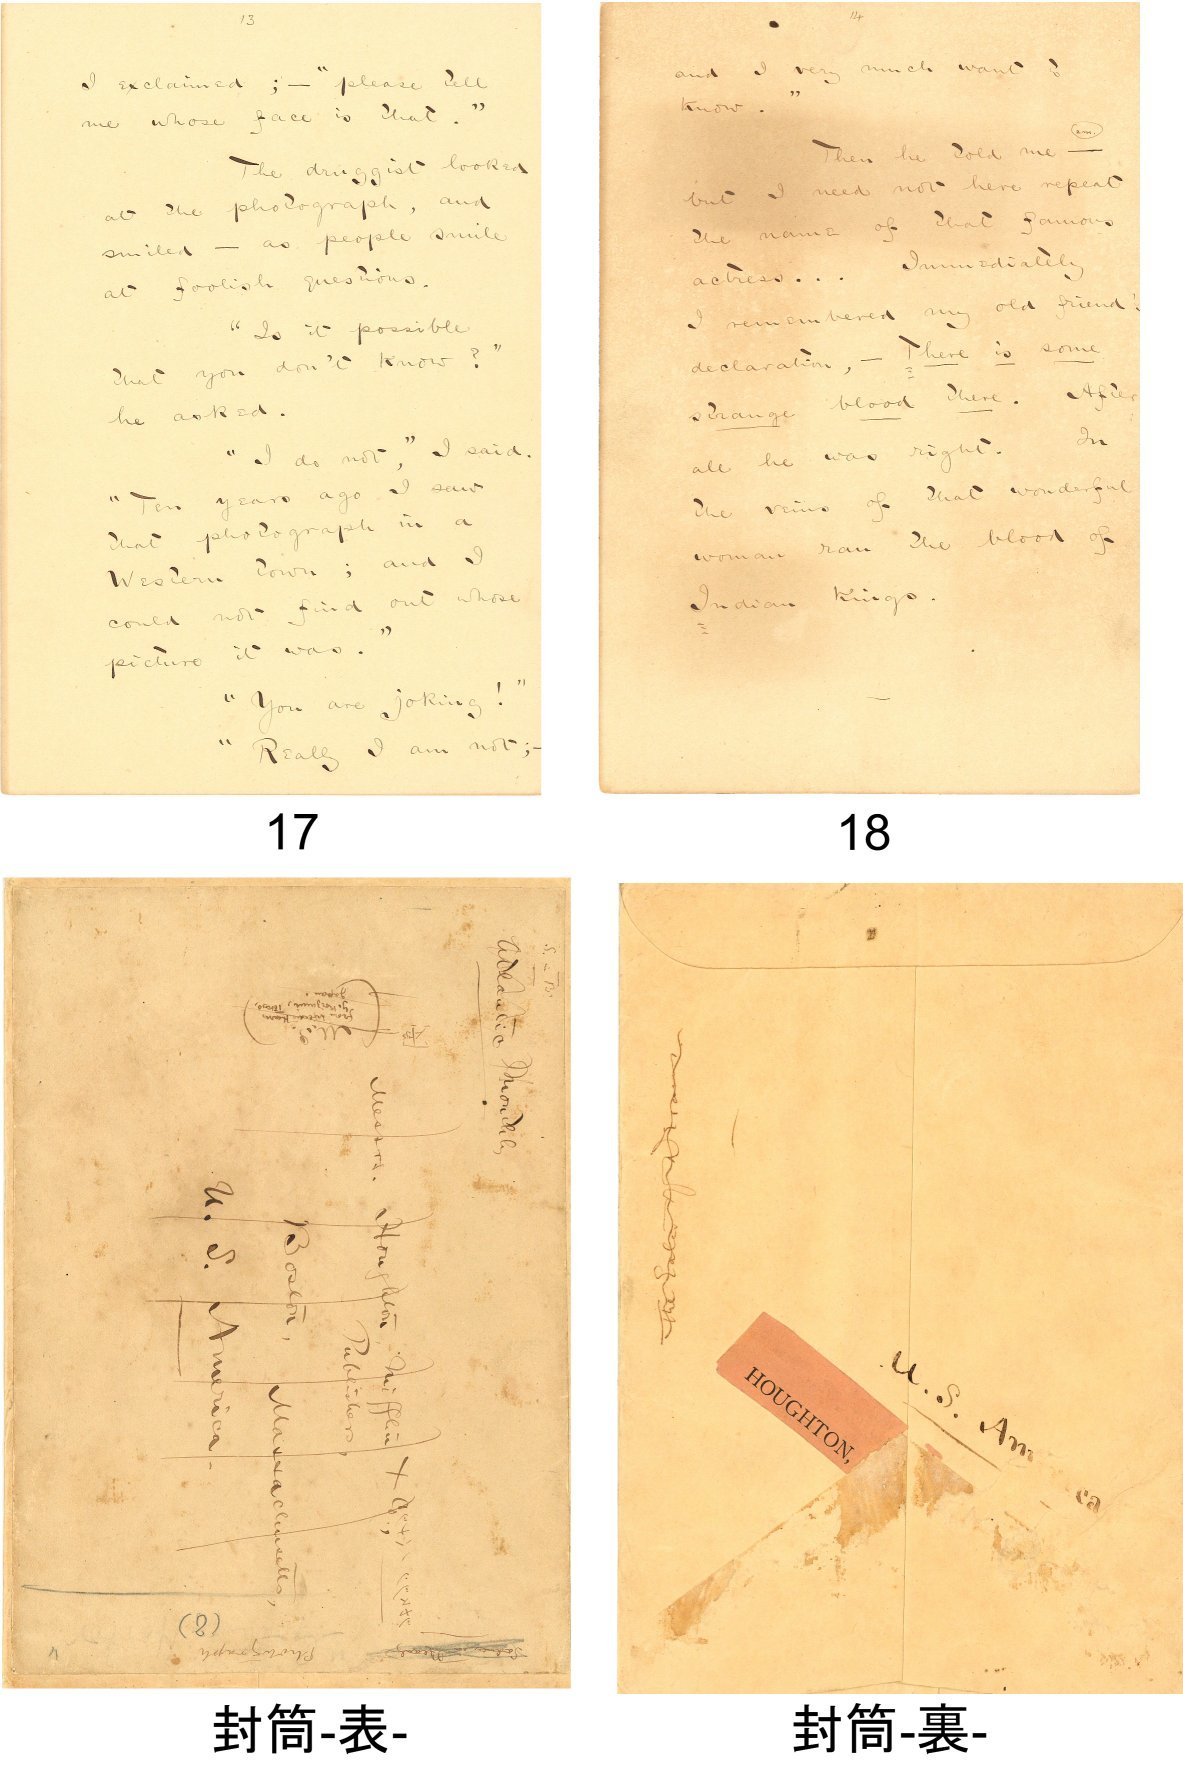 13
I exclaimed ; — "please tell
me whose face is that."
The druggist looked
at the photograph, and
smiled — as people smile
at foolish questions.
"Is it possible
that you don't know?"
he asked.
"I do not," I said.
"Ten years ago I saw
that photograph in a
Western town ; and I
could not find out whose
picture it was."
"You are joking!"
"Really I am not ; —
17
14
and I very much want to
know."
Then he told me —
but I need not here repeat
the name of that famous
actress... Immediately
I remembered my old friend's
declaration, — There is some
strange blood there. After
all he was right. In
the veins of that wonderful
woman ran the blood of
Indian kings.
18
Atlantic Monthly
M.S.
from Lafcadio Hearn
Japan.
Messrs. Houghton Mifflin & Co.,
Publishers,
Boston, Massachusetts,
U. S. America.
(8)
Photograph
封筒-表-
U. S. Am ca
HOUGHTON,
封筒-裏-